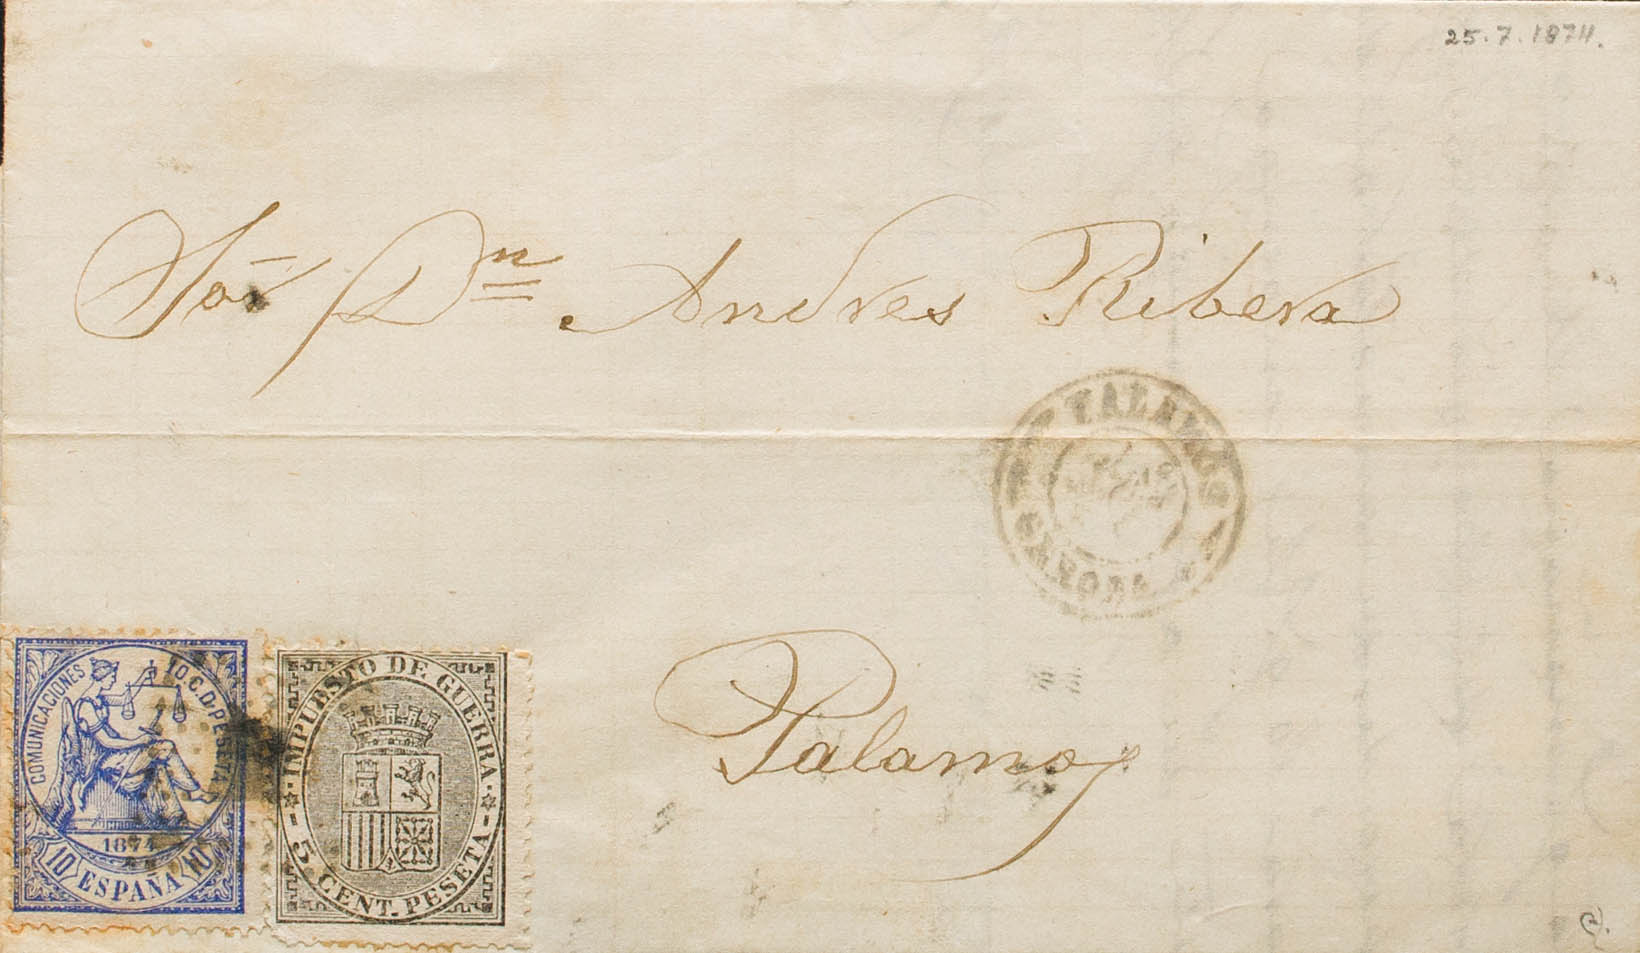 25.7.1874.
Sor Dn Andres Ribera
PALAMOS
GERONA
Palamos
COMUNICACIONES 10.C.D.PESETA
1874
10 ESPAÑA 10
IMPUESTO DE GUERRA
5 CENT. PESETA